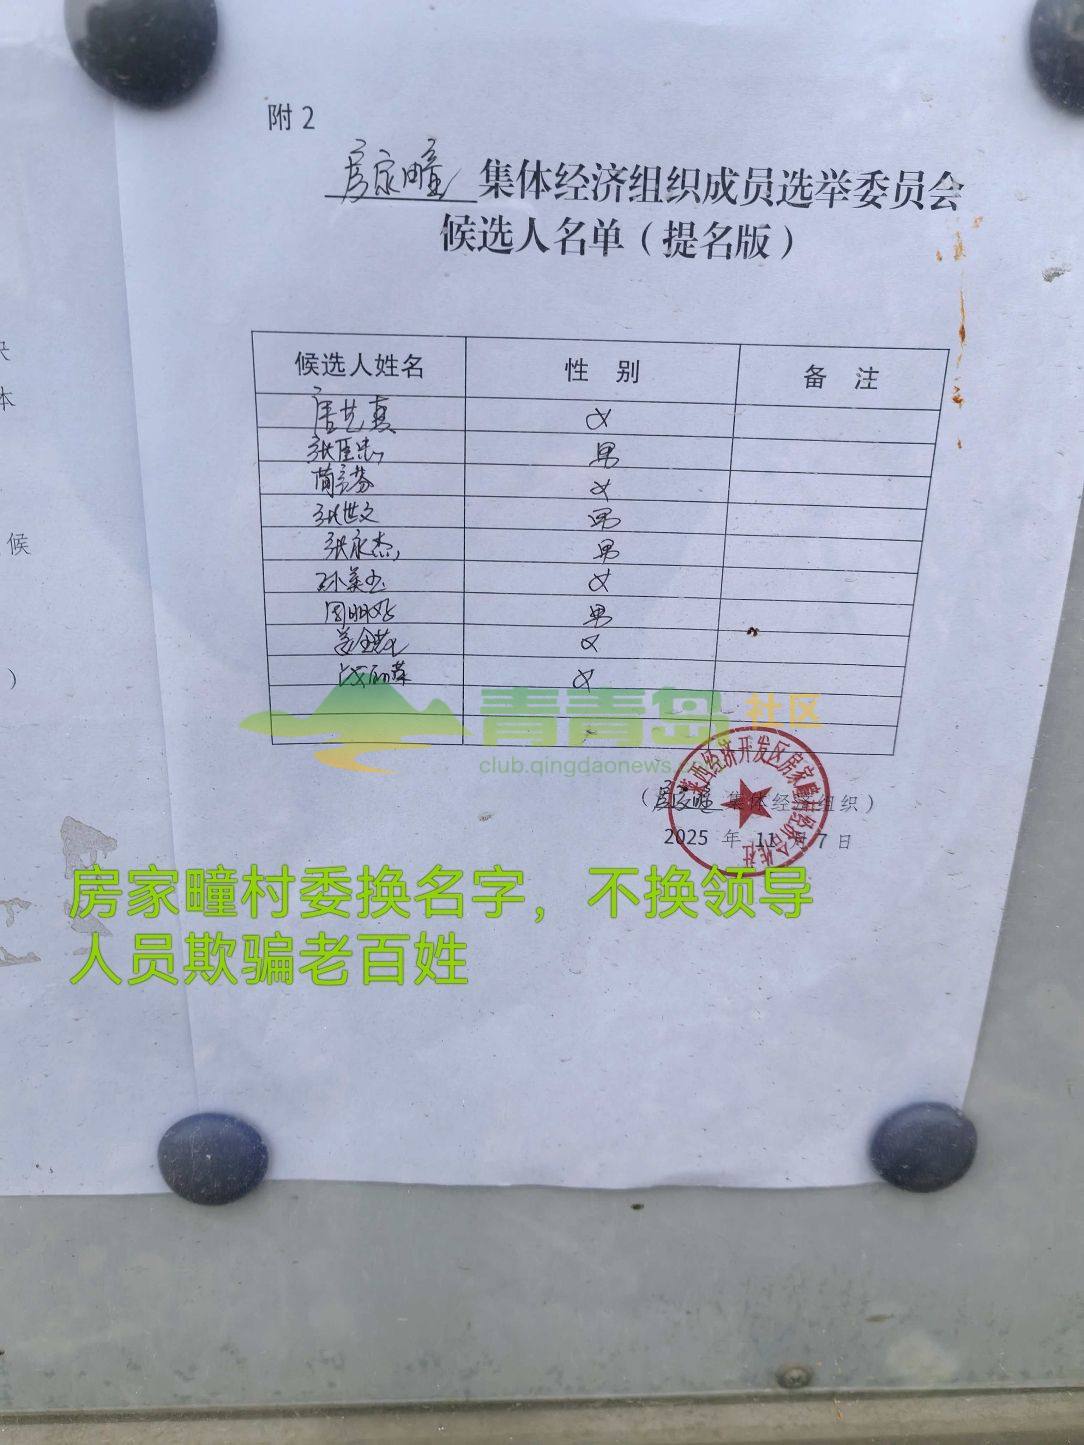 附 2
房家疃 集体经济组织成员选举委员会
候选人名单（提名版）
候选人姓名 性 别 备 注
女
男
女
张世文 男
张永杰 男
孙美玉 女
男
姜金花 女
女
青青岛 社区
club.qingdaonews.com
莱西经济开发区房家疃
（房家疃 集体经济组织）
2025 年 11 月 7 日
房家疃村委换名字，不换领导
人员欺骗老百姓
候
本
）